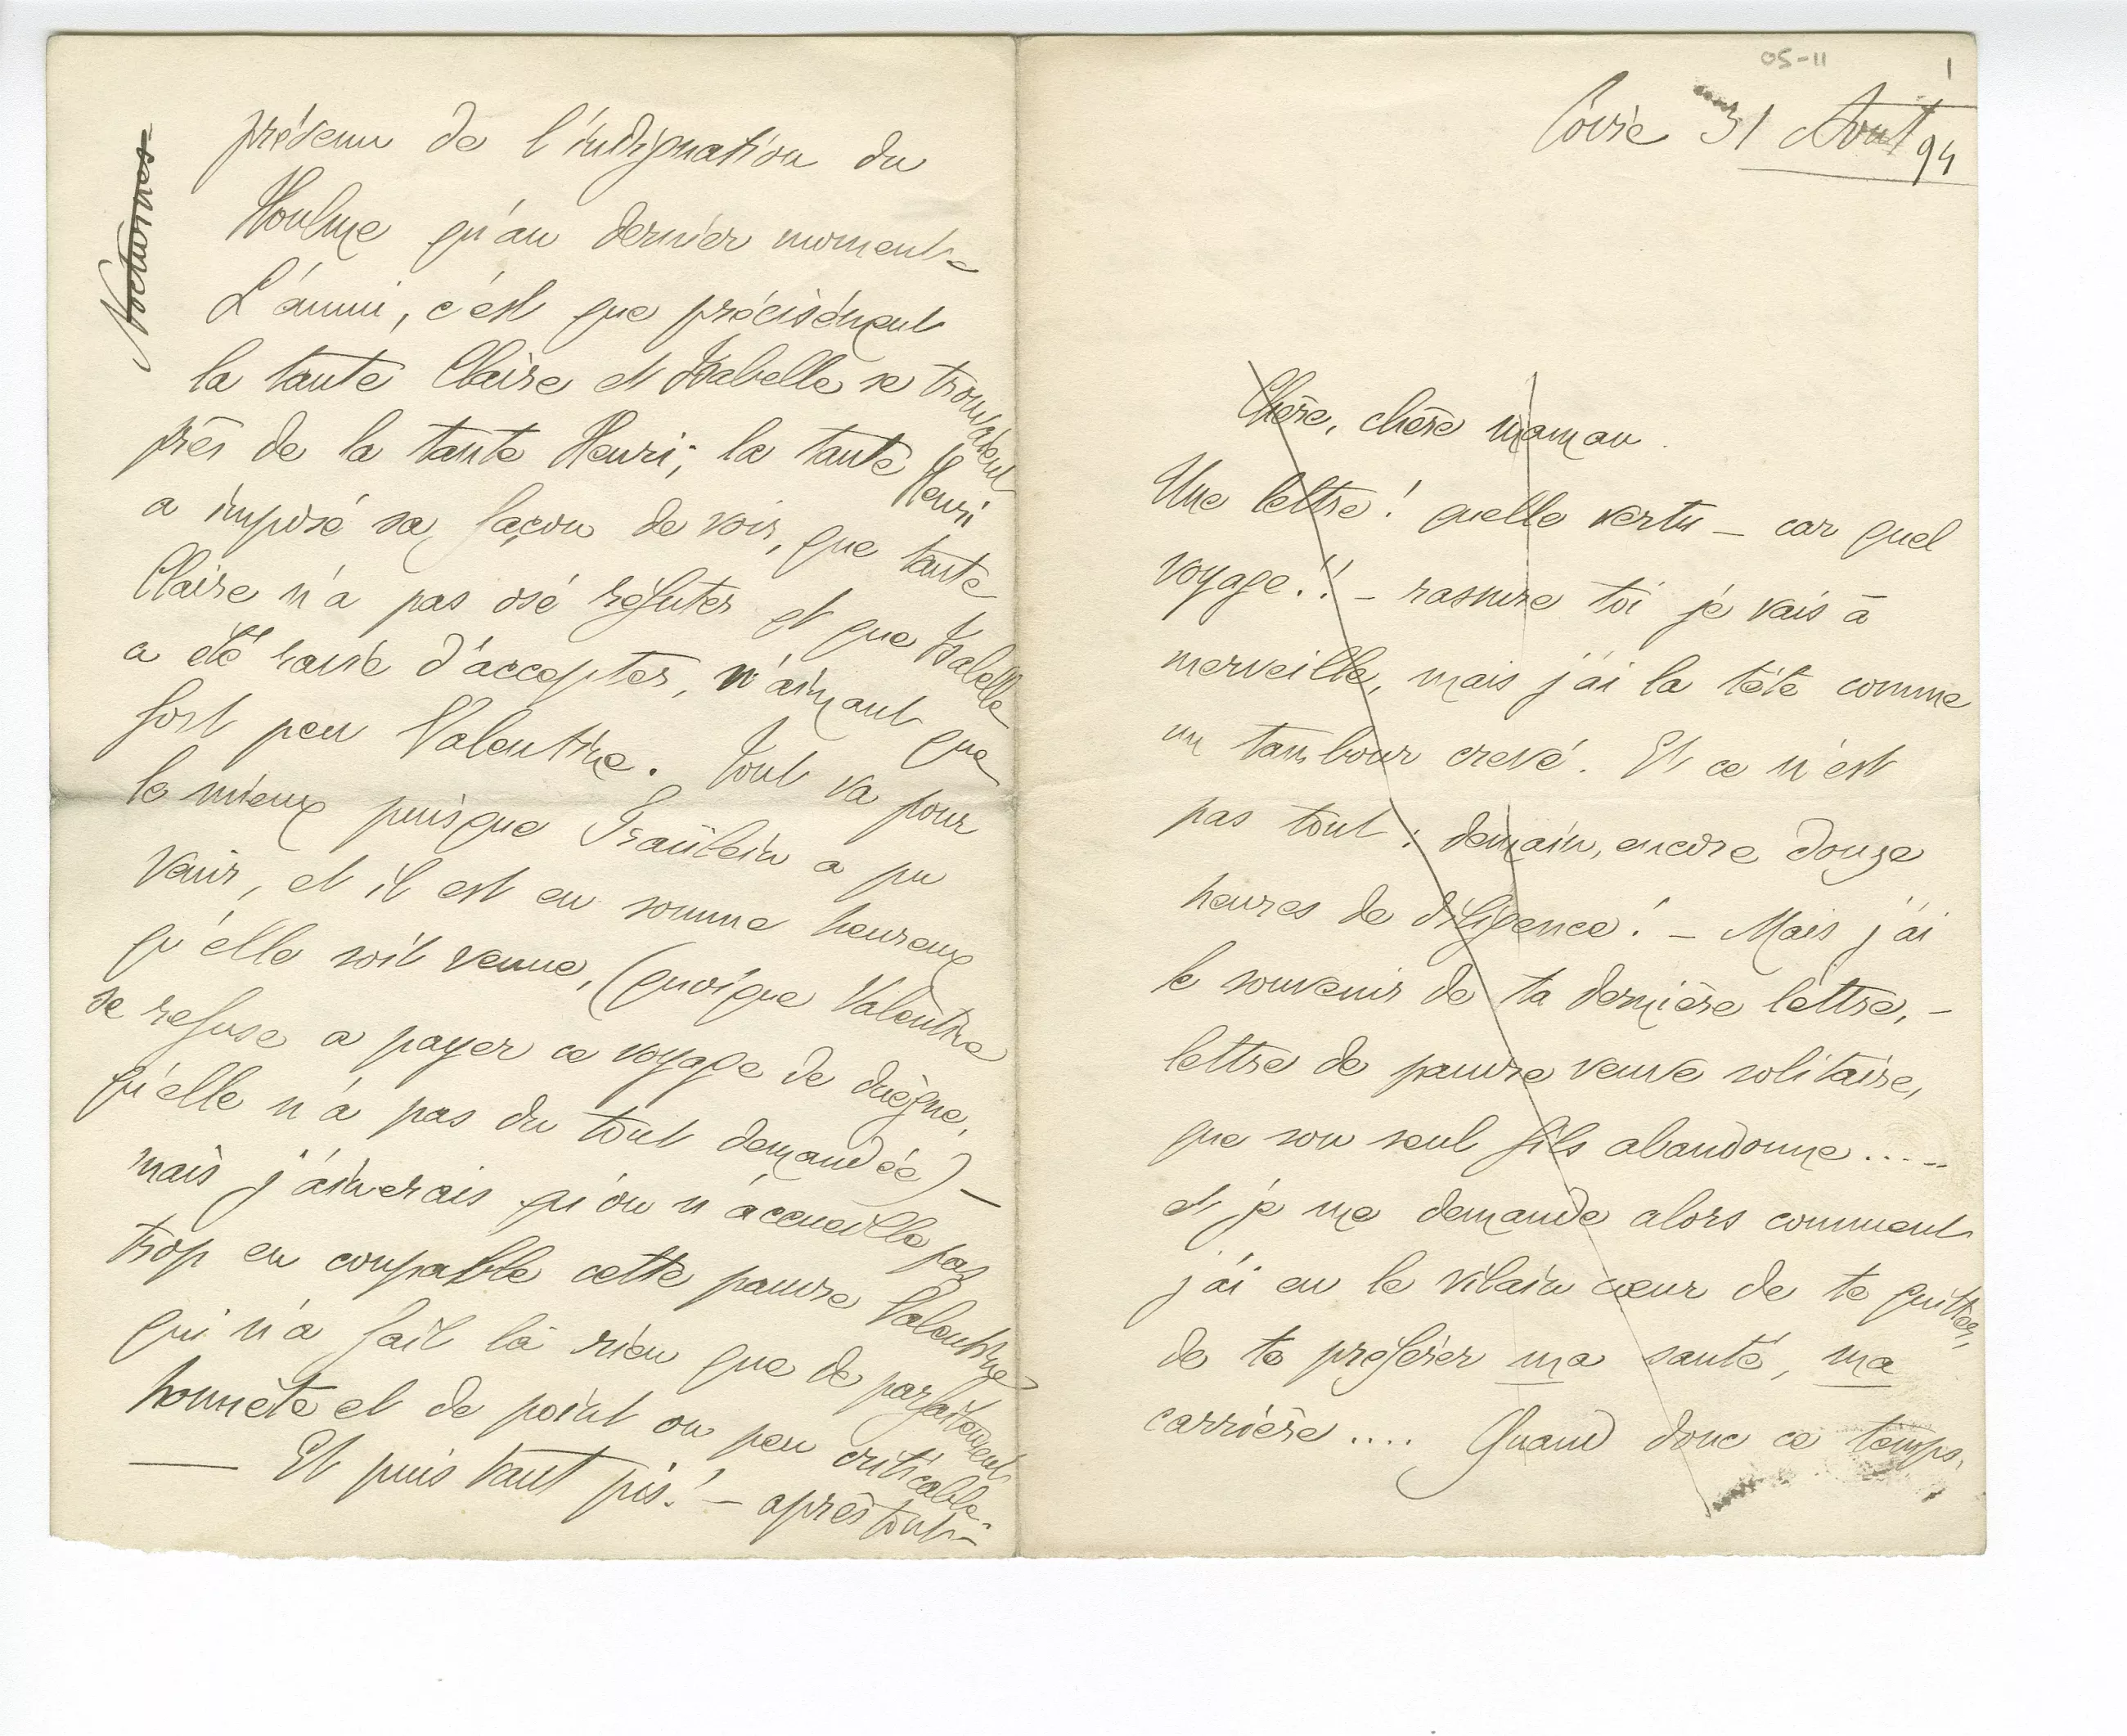 05-11
1
Coire 31 Aout 94
Chère, chère maman.
Une lettre ! quelle vertu – car quel
voyage !! – rassure toi je vais à
merveille, mais j'ai la tête comme
un tambour crevé. Et ce n'est
pas tout : demain, encore douze
heures de diligence ! – Mais j'ai
le souvenir de ta dernière lettre, –
lettre de pauvre veuve solitaire,
que son seul fils abandonne.....
et je me demande alors comment
j'ai eu le vilain cœur de te quitter,
de te préférer ma santé, ma
carrière .... Quand donc ce temps,
Nocturnes
prévenu de l'indignation du
Houlme qu'au dernier moment –
L'ennui, c'est que précisément
la tante Claire et Isabelle se trouvaient
près de la tante Henri; la tante Henri
a imposé sa façon de voir, que tante
Claire n'a pas osé réfuter et que Isabelle
a été ravie d'accepter, n'aimant que
fort peu Valentine. Tout va pour
le mieux puisque Fraülein a pu
venir, et il est en somme heureux
qu'elle soit venue, (quoique Valentine
se refuse a payer ce voyage de duègne,
qu'elle n'a pas du tout demandée) –
mais j'aimerais qu'on n'accueille pas
trop en coupable cette pauvre Valentine
qui n'a fait là rien que de parfaitement
honnête et de point ou peu criticable –
— Et puis tant pis ! – après tout –